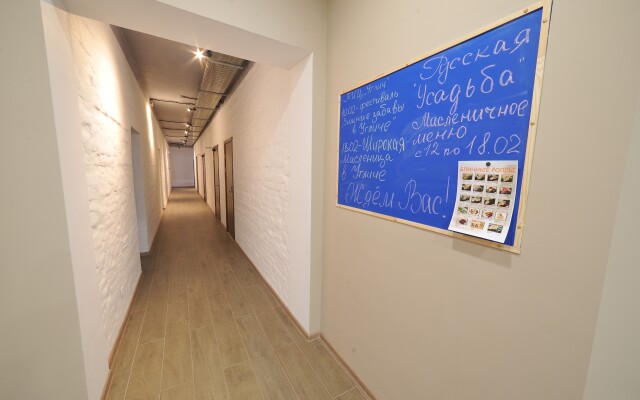 ТИЦ-Углич
10.02-фестиваль
"Зимние забавы
в Угличе"
18.02-Широкая
Масленица
в Угличе
Ждём Вас!
Русская
"Усадьба"
Масленичное
меню
с 12 по 18.02